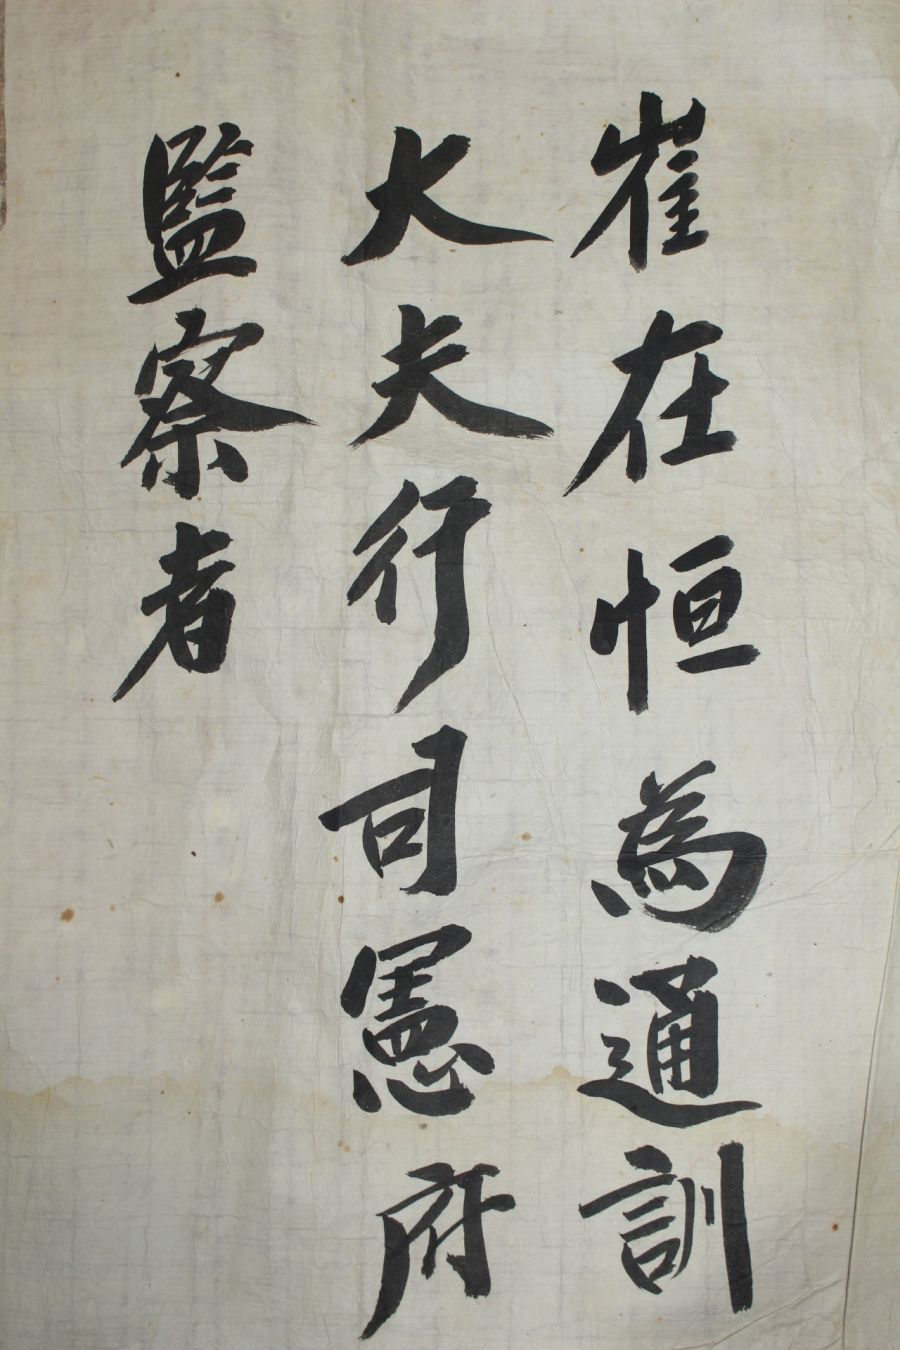 崔在恒為通訓
大夫行司憲府
監察者